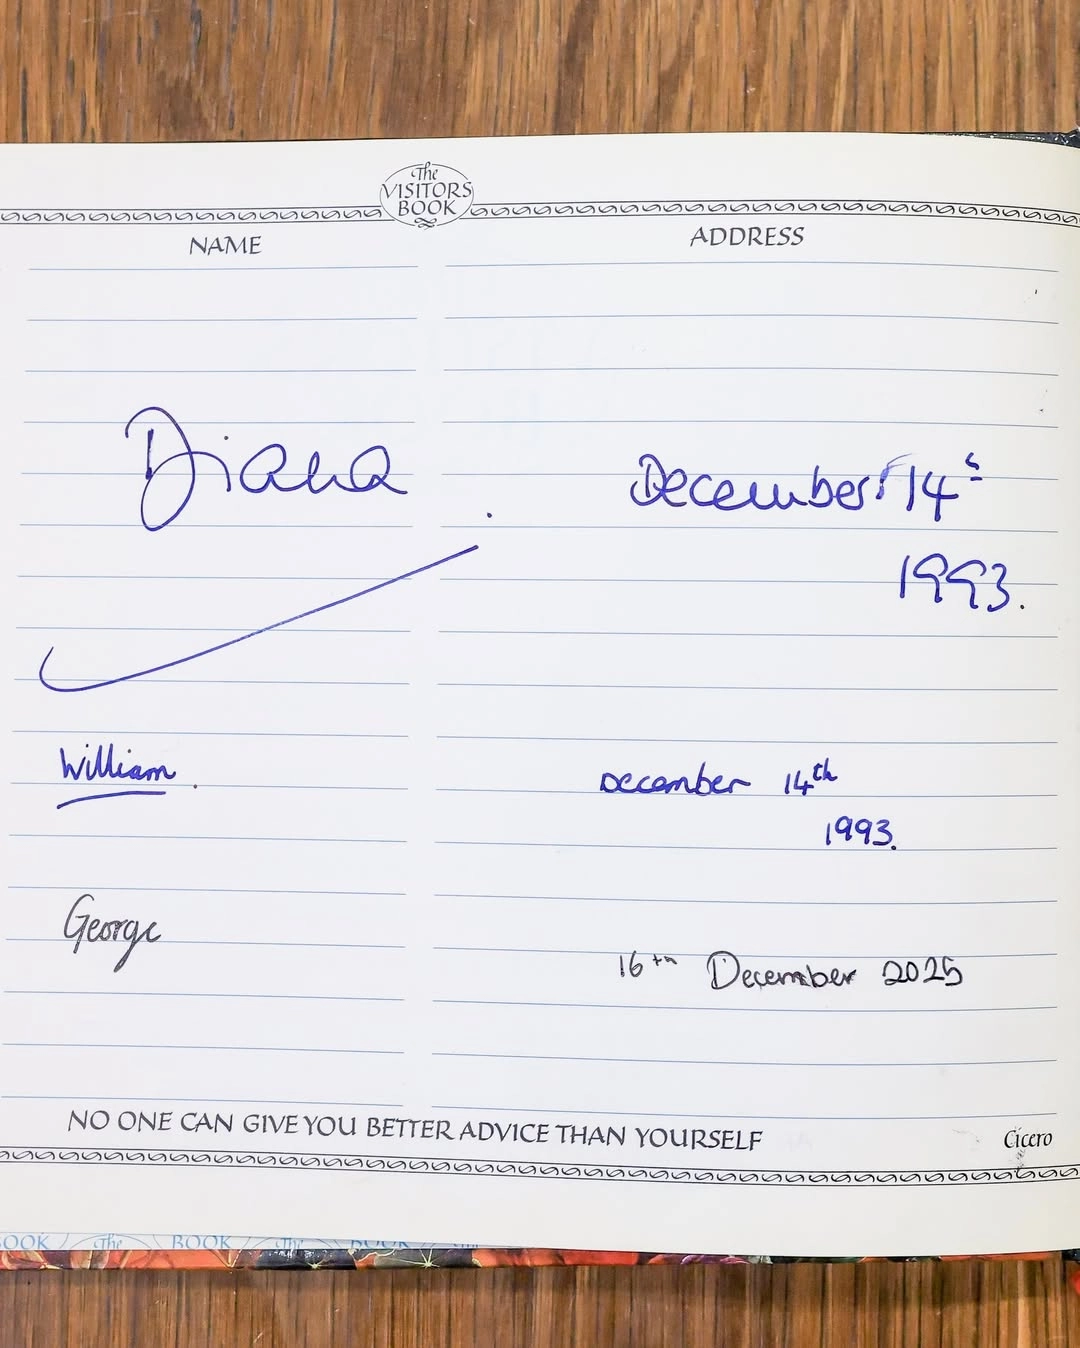 The
VISITORS
BOOK
NAME ADDRESS
Diana December 14th
1993.
William. December 14th
1993.
George 16th December 2025
NO ONE CAN GIVE YOU BETTER ADVICE THAN YOURSELF Cicero
BOOK The BOOK The BOOK The